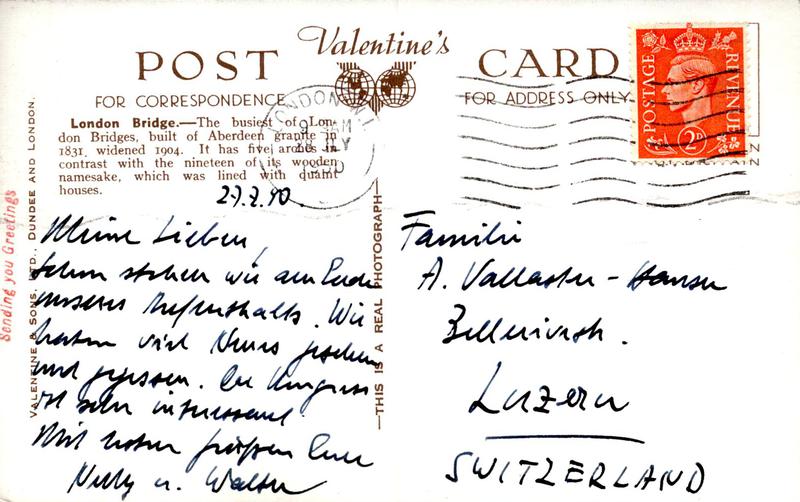 Valentine's
POST CARD
FOR CORRESPONDENCE
FOR ADDRESS ONLY
London Bridge.—The busiest of Lon-
don Bridges, built of Aberdeen granite in
1831, widened 1904. It has five arches in
contrast with the nineteen of its wooden
namesake, which was lined with quaint
houses.
Meine Lieben,
Schon stehen wir am Ende
unseres Aufenthalts. Wir
haben viel Neues gesehen
und . Der Kongress
ist sehr interessant
Mit lieben Grüssen Euer
Nelly u. Walter
Familie
A. Vallaster -
Bellerivestr.
Luzern
SWITZERLAND
POSTAGE
REVENUE
2D
LONDON
AM
VALENTINE & SONS, LTD., DUNDEE AND LONDON.
Sending you Greetings
—THIS IS A REAL PHOTOGRAPH—